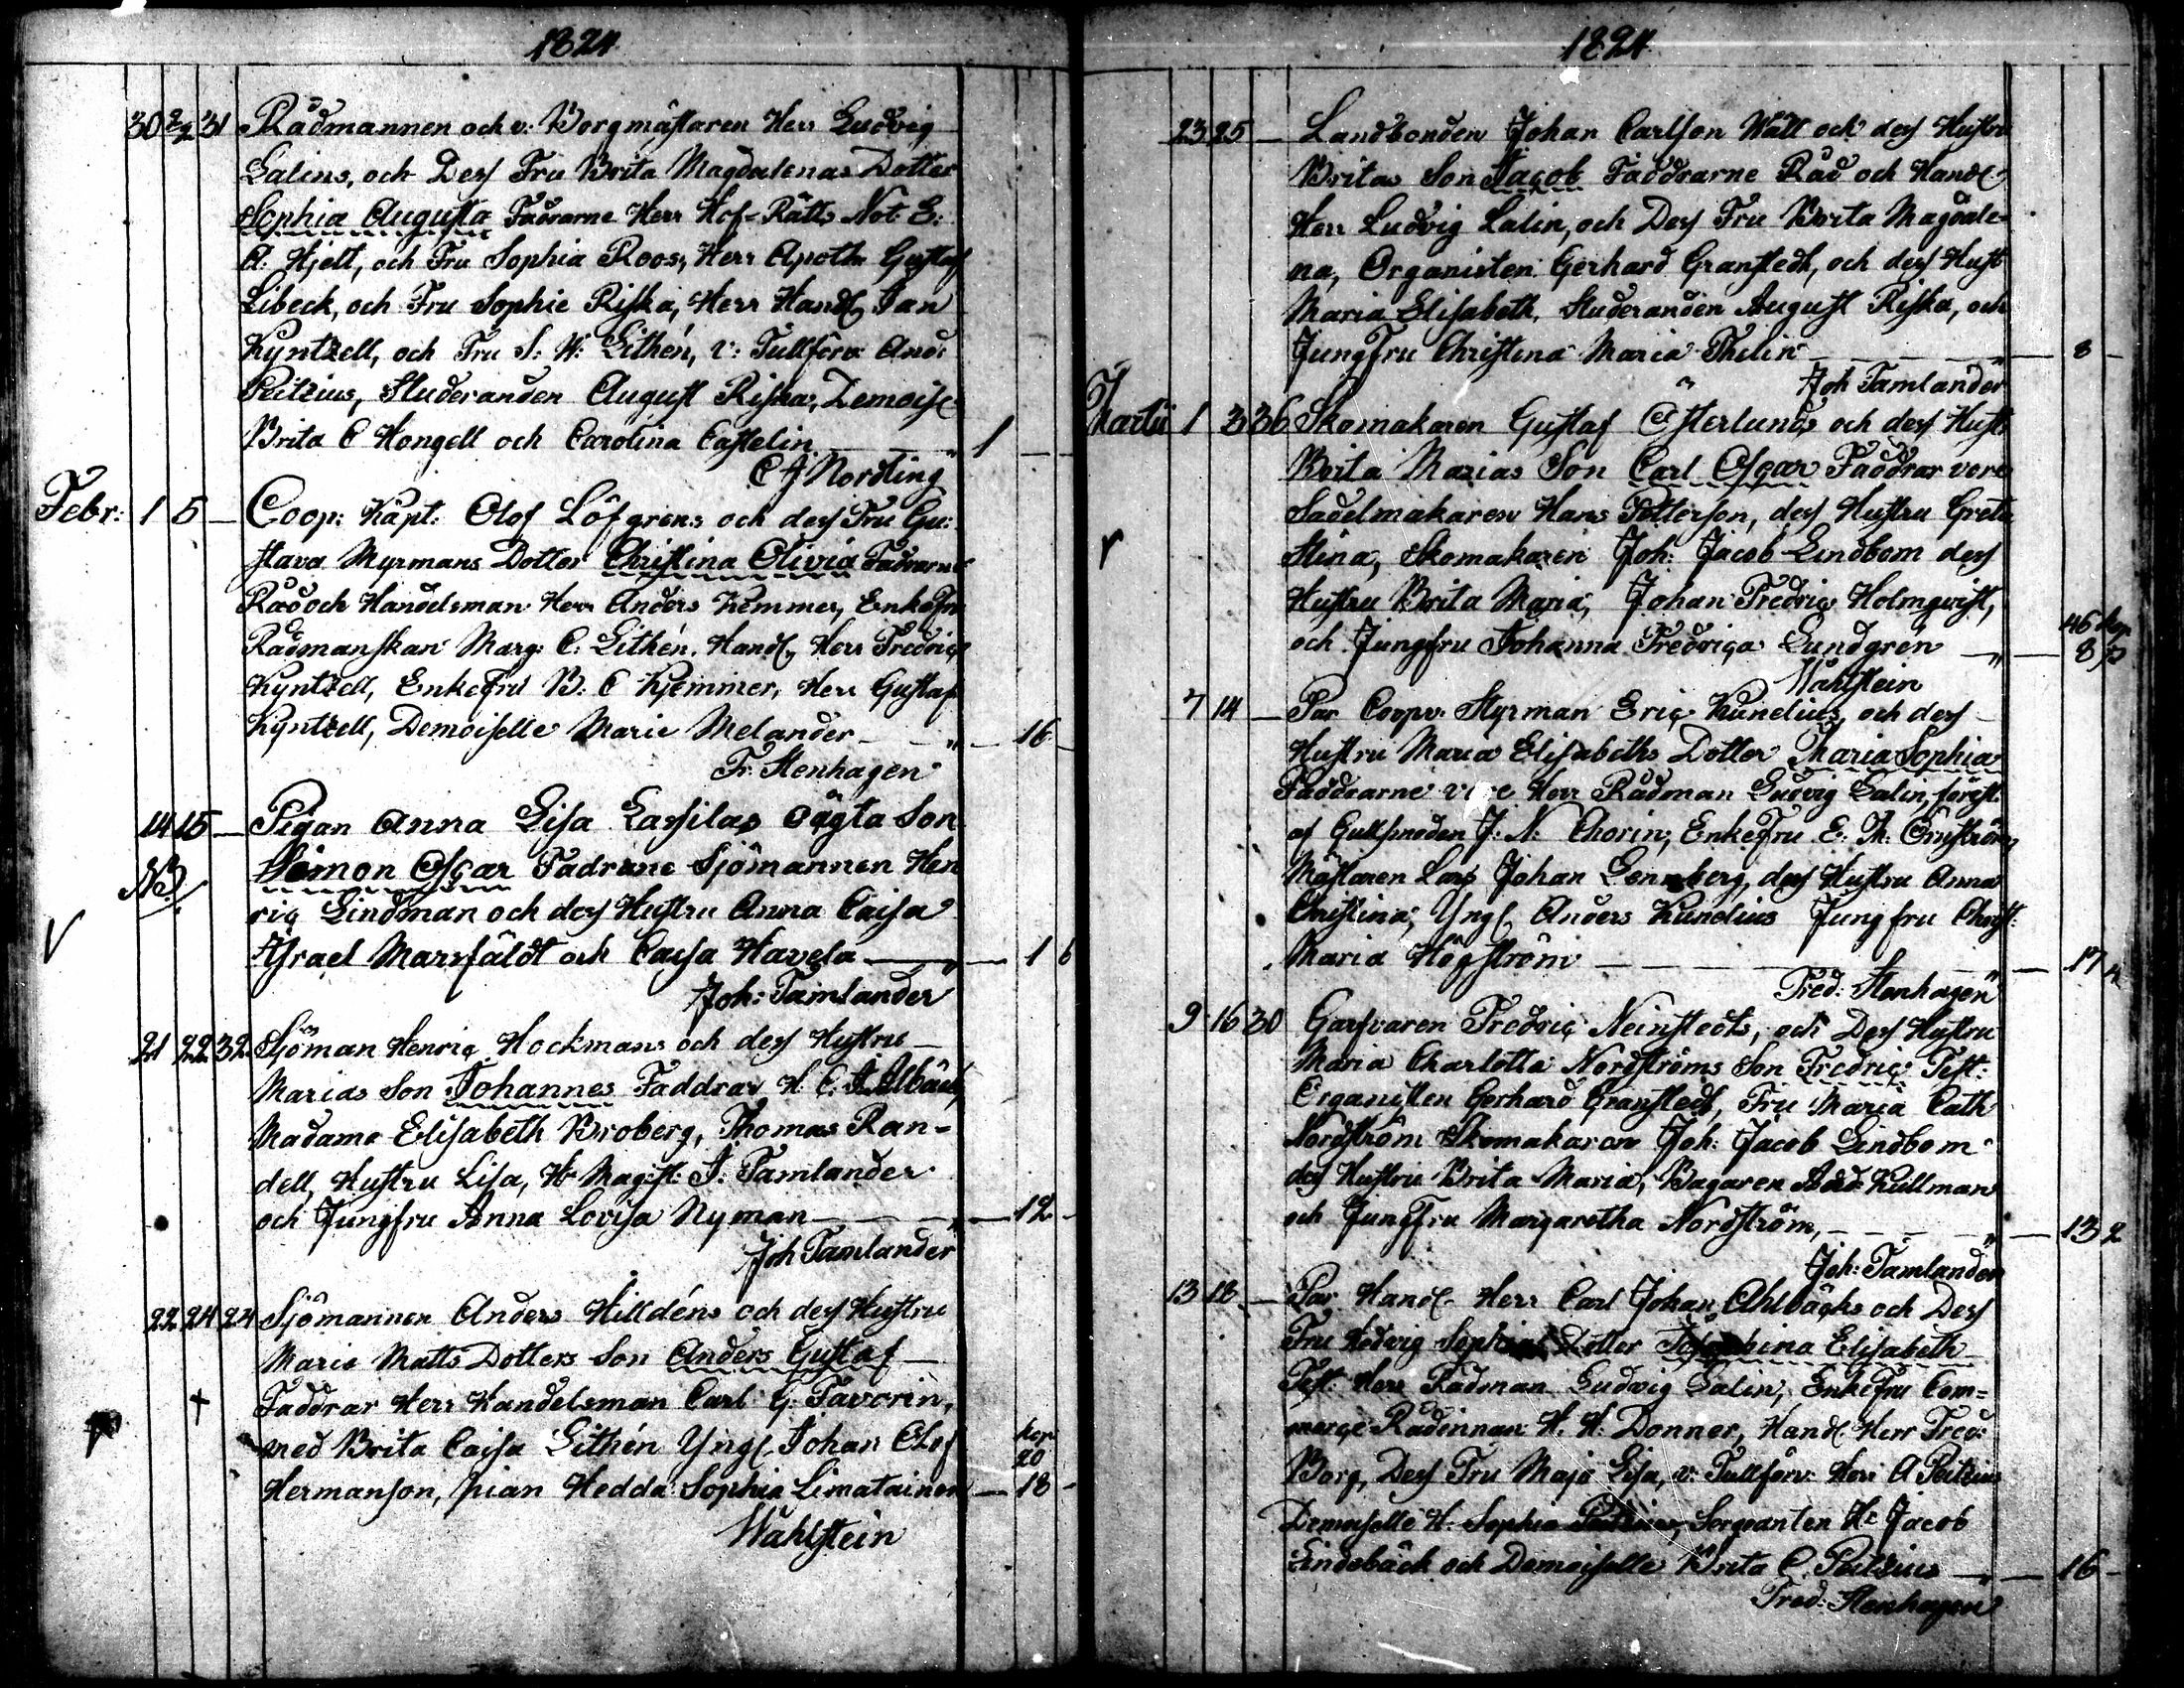 1824
30 2/2 31 Rådmannen och v: Borgmästaren Herr Ludvig
Salins, och Dess Fru Brita Magdalenas Dotter
Sophia Augusta Faddrarne Herr Hof-Rätts Not E:
A: Hjelt, och Fru Sophia Roos, Herr Apoth: Gustaf
Libeck, och Fru Sophie Riska, Herr Handl Jan
Kyntzell, och Fru S: W: Lithén, v: Tullförv: And:
Peitzius, Studeranden August Riska, Demoisle
Brita C Hongell och Carolina Castelin 1
C J Nordling
Febr: 1 5 Coop: Kapt: Olof Löfgrens och dess Fru Gu:
stava Myrmans Dotter Christina Olivia Faddrarne
Råd och Handelsman Herr Anders Kemmer, Enkefru
Rådmanskan Marg: C: Lithén, Handl, Herr Fredric
Kyntzell, Enkefru B: C Kjemmer, Herr Gustaf
Kyntzell, Demoiselle Marie Melander 16
Fr: Stenhagen
14 15 Pigan Anna Lisa Lassilas oägta Son
NB Simon Oscar Fadrane Sjömannen Hen
ric Lindman och dess Hustru Anna Caisa
Israel Marsfäldt och Caisa Havela 1 6
Joh: Tamlander
21 22 32 Sjöman Henric Hockmans och dess Hustru
Marias Son Johannes Faddrar H. C. J. Ahlbäck,
Madame Elisabeth Broberg, Thomas Ran-
dell, Hustru Lisa, Hr Magist: J: Tamlander
och Jungfru Anna Lovisa Nyman 12
Joh Tamlander
22 24 24 Sjömannen Anders Hilldéns och dess Hustru
Maria Matts Dotters Son Anders Gustaf
Faddrar Herr Handelsman Carl G. Favorin,
med Brita Caisa Lithén Yngl. Johan Olof kop 20
Hermanson, pian Hedda Sophia Limatainen 18
Wahlstein
1824
23 25 Landbonden Johan Carlson Wäll och dess Hustru
Britas Son Jacob Faddrarne Råd och Handl
Herr Ludvig Salin, och Dess Fru Brita Magdale-
na, Organisten Gerhard Granstedt, och dess Hust
Maria Elisabeth, Studeranden August Riska, och
Jungfru Christina Maria Thelin 8
Joh Tamlander
Martii 1 3 36 Skomakaren Gustaf Österlunds och dess Hust:
Brita Marias Son Carl Oscar Faddrar vore
Sadelmakaren Hans Petterson, dess Hustru Greta
Stina, Skomakaren Joh: Jacob Lindbom dess
Hustru Brita Maria, Johan Fredric Holmqvist,
och Jungfru Johanna Fredrica Lundgrén 8
Wahlstein
7 14 Par Coopv: Styrman Eric Kunelius, och dess
Hustru Maria Elisabeths Dotter Maria Sophia
Faddrarne vore Herr Rådman Ludvig Salin, förest:
af Gullsmeden J: N: Chorin, Enkefru E. M:
Mästaren Lars Johan Lennberg, dess Hustru Anna
Christina, Yngl. Anders Kunelius Jungfru Christ:
Maria Högström 17
Fred: Stenhagen
9 16 30 Garfvaren Fredric Neinstedts, och Dess Hustru
Maria Charlotta Nordströms Son Fredric Test:
Organisten Gerhard Granstedt, Fru Maria Cath
Nordström Skomakaren Joh: Jacob Lindbom
dess Hustru Brita Maria, Bagaren Kullman
och Jungfru Margaretha Nordström, 13 2
Joh: Tamlander
13 18 Par Handl Herr Carl Johan Ahlbäcks och Dess
Fru Hedvig Sophias Dotter Josephina Elisabeth
Test: Herr Rådman Ludvig Salin, Enkefru Com-
merce-Rådinnan H. H: Donner, Handl Herr Fred:
Borg, Dess Fru Maja Lisa, v: Tullförv: Herr A Peitzius
Demoiselle H. Sophia Peitzius, Sergeanten Hr Jacob
Lindebäck och Demoiselle Brita C. Peitzius 16
Fred: Stenhagen